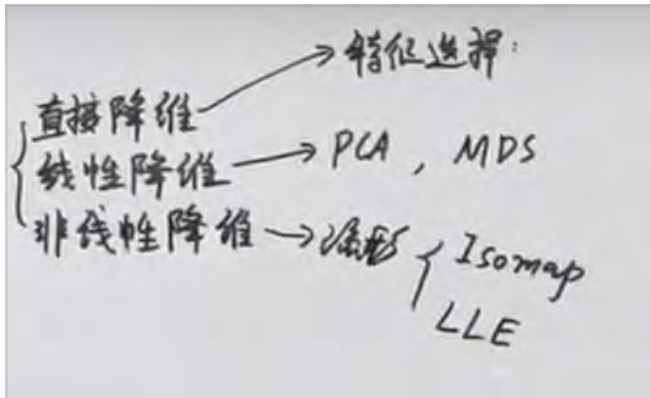 直接降维 → 特征选择:
线性降维 → PCA , MDS
非线性降维 → 流形 { Isomap
LLE